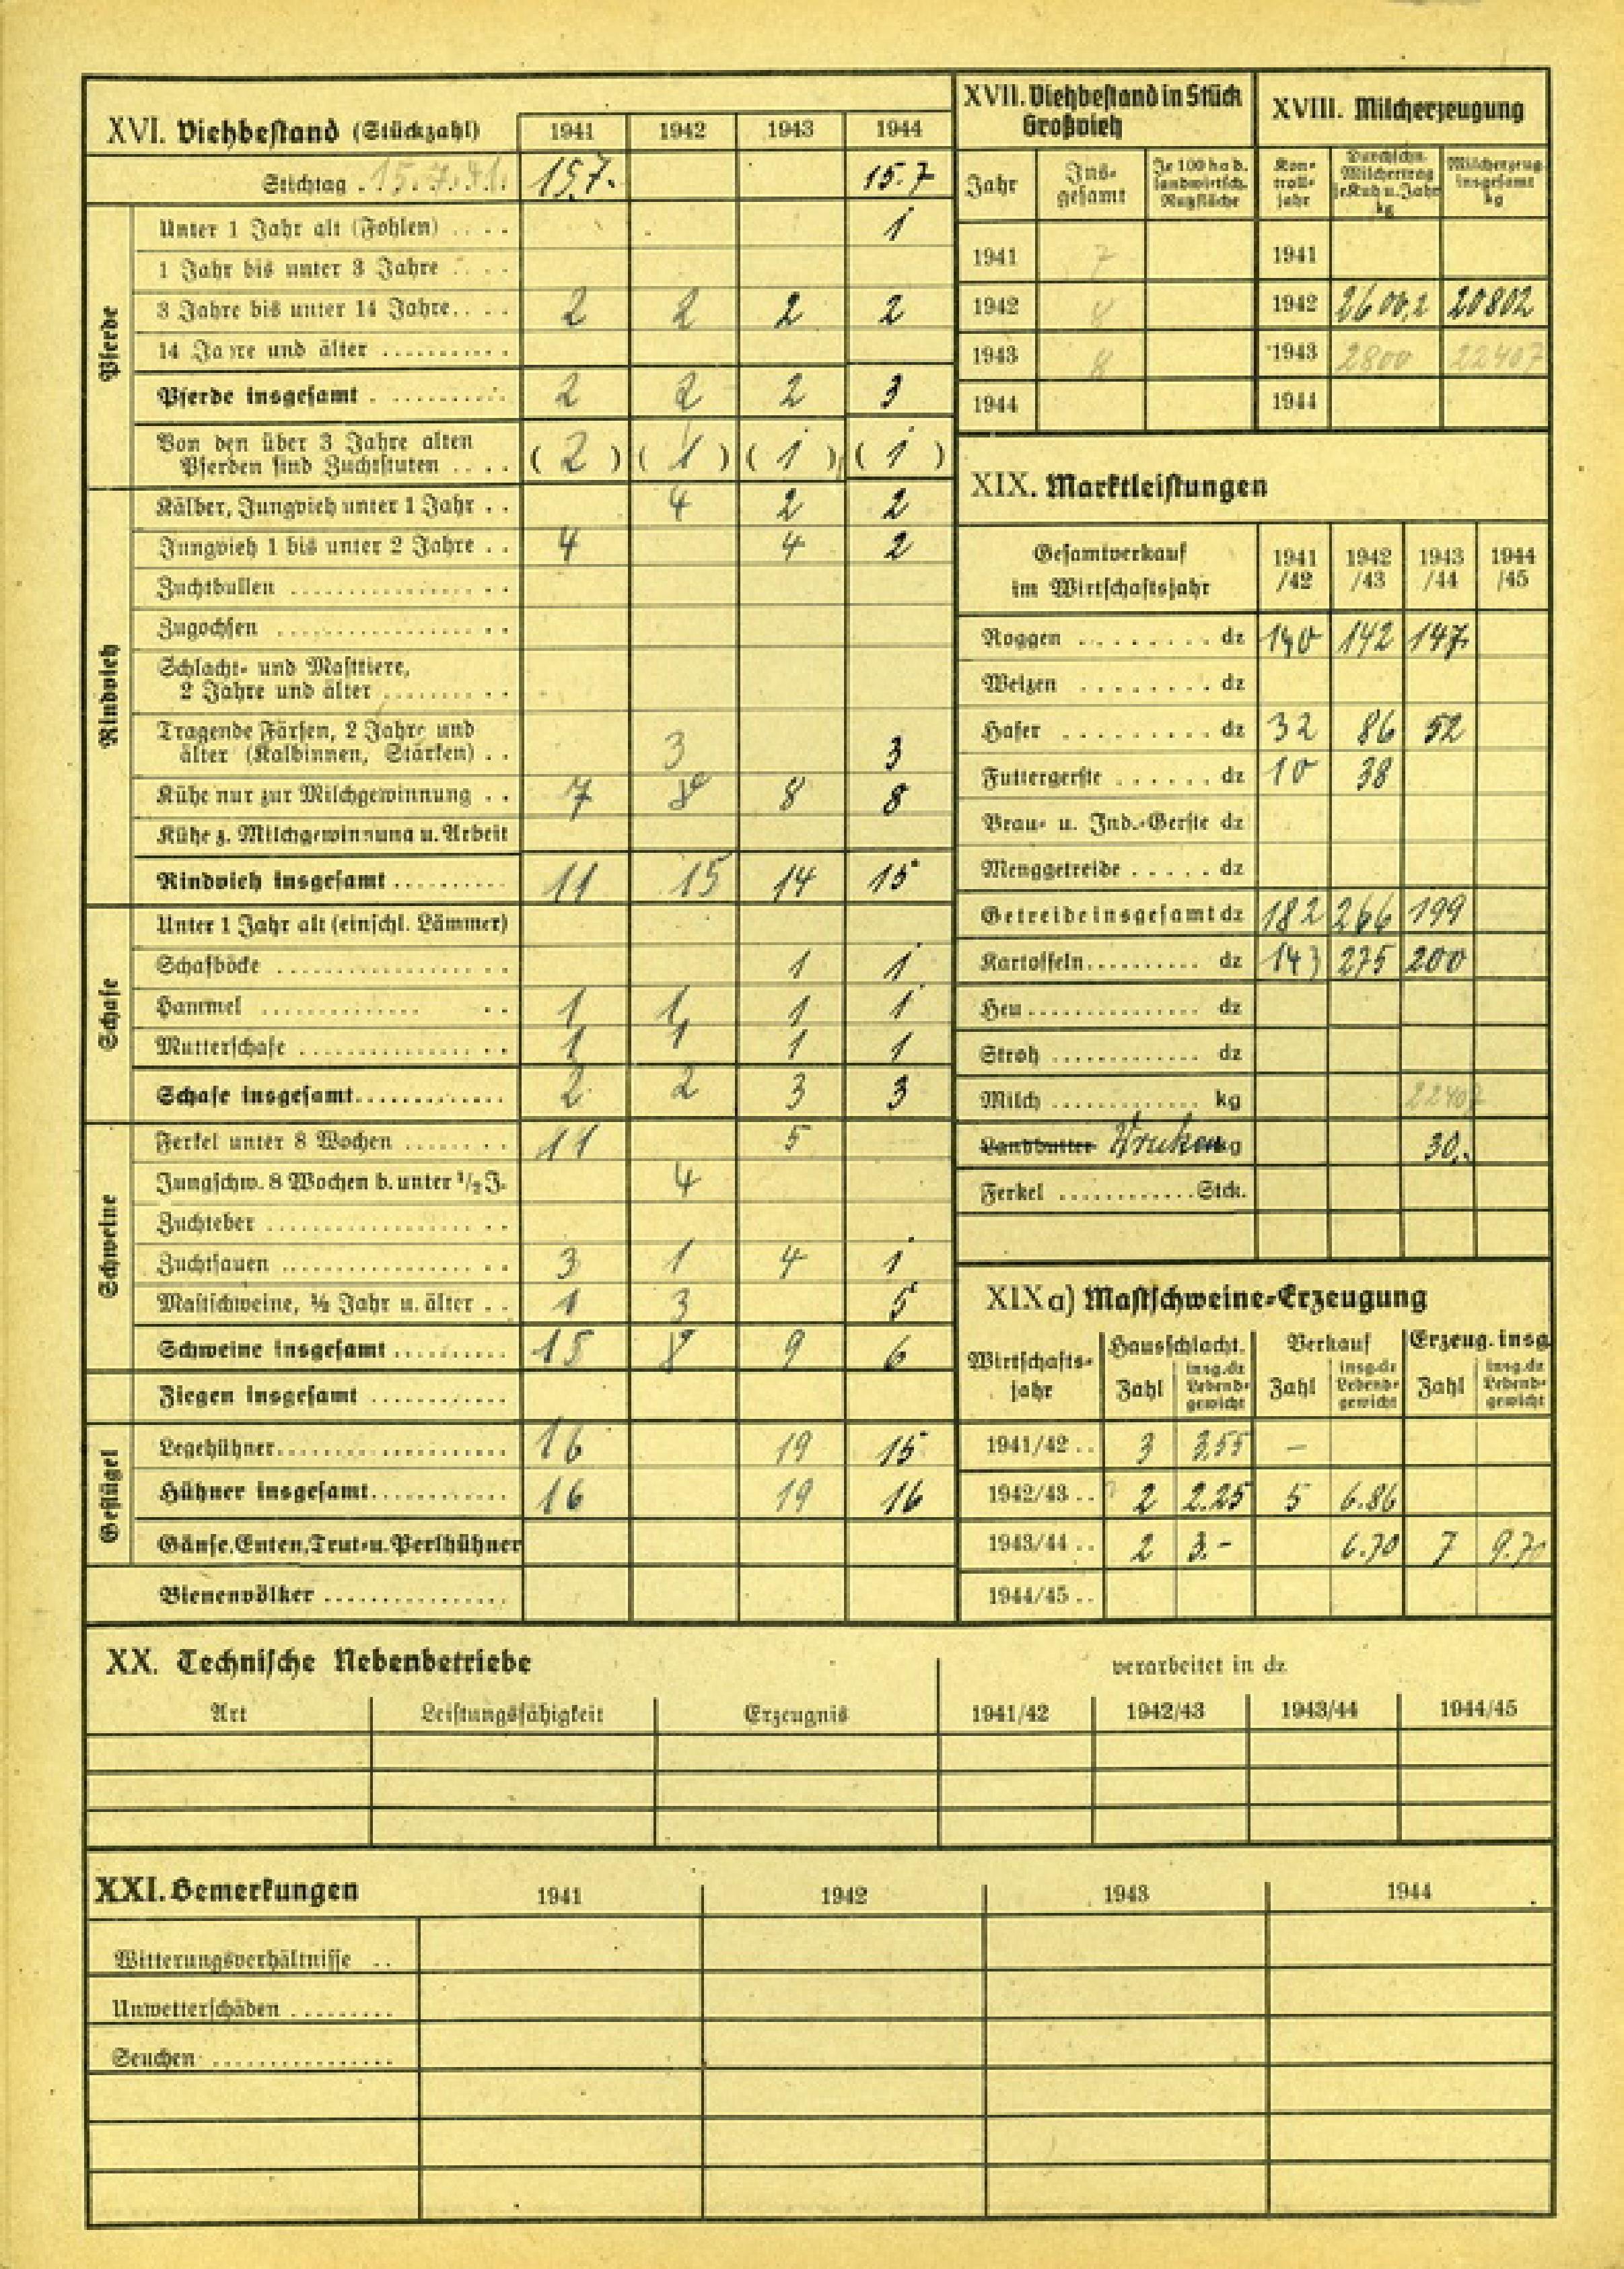 XVI. Viehbestand (Stückzahl) 1941 1942 1943 1944
Stichtag . 15.7.41. 15.7. 15.7
Pferde
Unter 1 Jahr alt (Fohlen) . . . . 1
1 Jahr bis unter 3 Jahre . . . .
3 Jahre bis unter 14 Jahre. . . . 2 2 2 2
14 Jahre und älter . . . . . . . . . . .
Pferde insgesamt . . . . . . . . . . . 2 2 2 3
Von den über 3 Jahre alten
Pferden sind Zuchtstuten . . . . ( 2 ) ( 1 ) ( 1 ) ( 1 )
Rindvieh
Kälber, Jungvieh unter 1 Jahr . . 4 2 2
Jungvieh 1 bis unter 2 Jahre . . 4 4 2
Zuchtbullen . . . . . . . . . . . . . . . . . .
Zugochsen . . . . . . . . . . . . . . . . . . .
Schlacht- und Masttiere,
2 Jahre und älter . . . . . . . . . .
Tragende Färsen, 2 Jahre und
älter (Kalbinnen, Stärken) . . 3 3
Kühe nur zur Milchgewinnung . . 7 8 8 8
Kühe z. Milchgewinnung u. Arbeit
Rindvieh insgesamt . . . . . . . . . . 11 15 14 15
Schafe
Unter 1 Jahr alt (einschl. Lämmer)
Schafböcke . . . . . . . . . . . . . . . . . . . 1 1
Hammel . . . . . . . . . . . . . . . . 1 1 1 1
Mutterschafe . . . . . . . . . . . . . . . . . 1 1 1 1
Schafe insgesamt. . . . . . . . . . . . . 2 2 3 3
Schweine
Ferkel unter 8 Wochen . . . . . . . 11 5
Jungschw. 8 Wochen b. unter ½ J. 4
Zuchteber . . . . . . . . . . . . . . . . . . . .
Zuchtsauen . . . . . . . . . . . . . . . . . . . 3 1 4 1
Mastschweine, ½ Jahr u. älter . . 1 3 5
Schweine insgesamt . . . . . . . . . . 15 8 9 6
Ziegen insgesamt . . . . . . . . . . . .
Geflügel
Legehühner. . . . . . . . . . . . . . . . . . . . 16 19 15
Hühner insgesamt. . . . . . . . . . . . 16 19 16
Gänse, Enten, Trut- u. Perlhühner
Bienenvölker . . . . . . . . . . . . . . . .
XVII. Viehbestand in Stück
Großvieh
Jahr Ins- gesamt Je 100 ha d. landwirtsch. Nutzfläche
1941 7
1942 8
1943 8
1944
XVIII. Milcherzeugung
Kon- troll- jahr Durchschn. Milchertrag je Kuh u. Jahr kg Milcherzeug. insgesamt kg
1941
1942 2600,2 20802
1943 2800 22407
1944
XIX. Marktleistungen
Gesamtverkauf
im Wirtschaftsjahr 1941/42 1942/43 1943/44 1944/45
Roggen . . . . . . . . dz 140 142 147.
Weizen . . . . . . . . dz
Hafer . . . . . . . . . dz 32 86 52
Futtergerste . . . . . . dz 10 38
Brau- u. Ind.-Gerste dz
Menggetreide . . . . . dz
Getreide insgesamt dz 182 266 199
Kartoffeln. . . . . . . . . . dz 143 275 200
Heu . . . . . . . . . . . . . . . dz
Stroh . . . . . . . . . . . . . dz
Milch . . . . . . . . . . . . . kg 22407
Landbutter Wruken kg 30,.
Ferkel . . . . . . . . . . . . Stck.
XIX a) Mastschweine-Erzeugung
Wirtschafts- jahr Hausschlacht. Verkauf Erzeug. insg.
Zahl insg. dz Lebend- gewicht Zahl insg. dz Lebend- gewicht Zahl insg. dz Lebend- gewicht
1941/42 . . 3 3,55 –
1942/43 . . 2 2.25 5 6.86
1943/44 . . 2 3.- 6.70 7 9.70
1944/45 . .
XX. Technische Nebenbetriebe verarbeitet in dz
Art Leistungsfähigkeit Erzeugnis 1941/42 1942/43 1943/44 1944/45
XXI. Bemerkungen 1941 1942 1943 1944
Witterungsverhältnisse . .
Unwetterschäden . . . . . . . . .
Seuchen . . . . . . . . . . . . . . . .